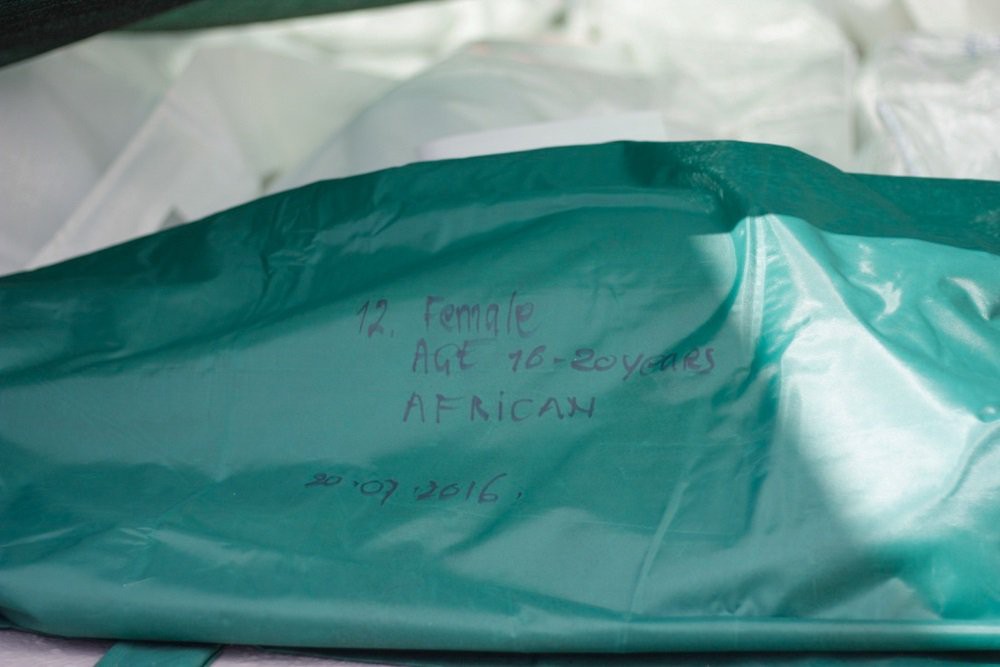 12. Female
AGE 16-20 years
AFRICAN
20.07.2016.